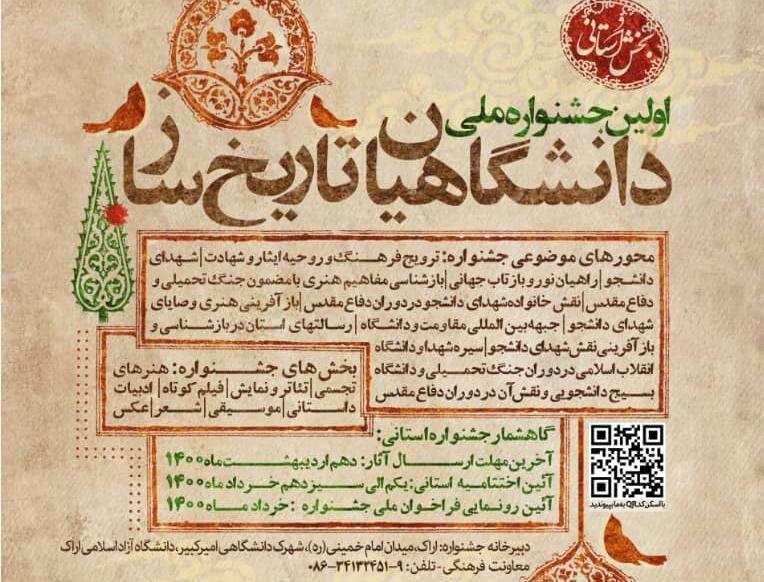 بخش استانی
اولین جشنواره ملی
دانشگاهیان تاریخ ساز
محورهای موضوعی جشنواره: ترویج فرهنگ و روحیه ایثار و شهادت | شهدای
دانشجو | راهیان نور و بازتاب جهانی | بازشناسی مفاهیم هنری با مضمون جنگ تحمیلی و
دفاع مقدس | نقش خانواده شهدای دانشجو در دوران دفاع مقدس | بازآفرینی هنری وصایای
شهدای دانشجو | جبهه بین المللی مقاومت و دانشگاه | رسالتهای استان در بازشناسی و
بازآفرینی نقش شهدای دانشجو | سیره شهدا و دانشگاه
انقلاب اسلامی در دوران جنگ تحمیلی و دانشگاه
بسیج دانشجویی و نقش آن در دوران دفاع مقدس
بخش های جشنواره: هنرهای
تجسمی | تئاتر و نمایش | فیلم کوتاه | ادبیات
داستانی | موسیقی | شعر | عکس
گاهشمار جشنواره استانی:
آخرین مهلت ارسال آثار: دهم اردیبهشت ماه ۱۴۰۰
آئین اختتامیه استانی: یکم الی سیزدهم خرداد ماه ۱۴۰۰
آئین رونمایی فراخوان ملی جشنواره: خرداد ماه ۱۴۰۰
با اسکن کد QR به ما بپیوندید
دبیرخانه جشنواره: اراک، میدان امام خمینی (ره)، شهرک دانشگاهی امیرکبیر، دانشگاه آزاد اسلامی اراک
معاونت فرهنگی - تلفن: ۹-۰۸۶-۳۴۱۳۲۴۵۱